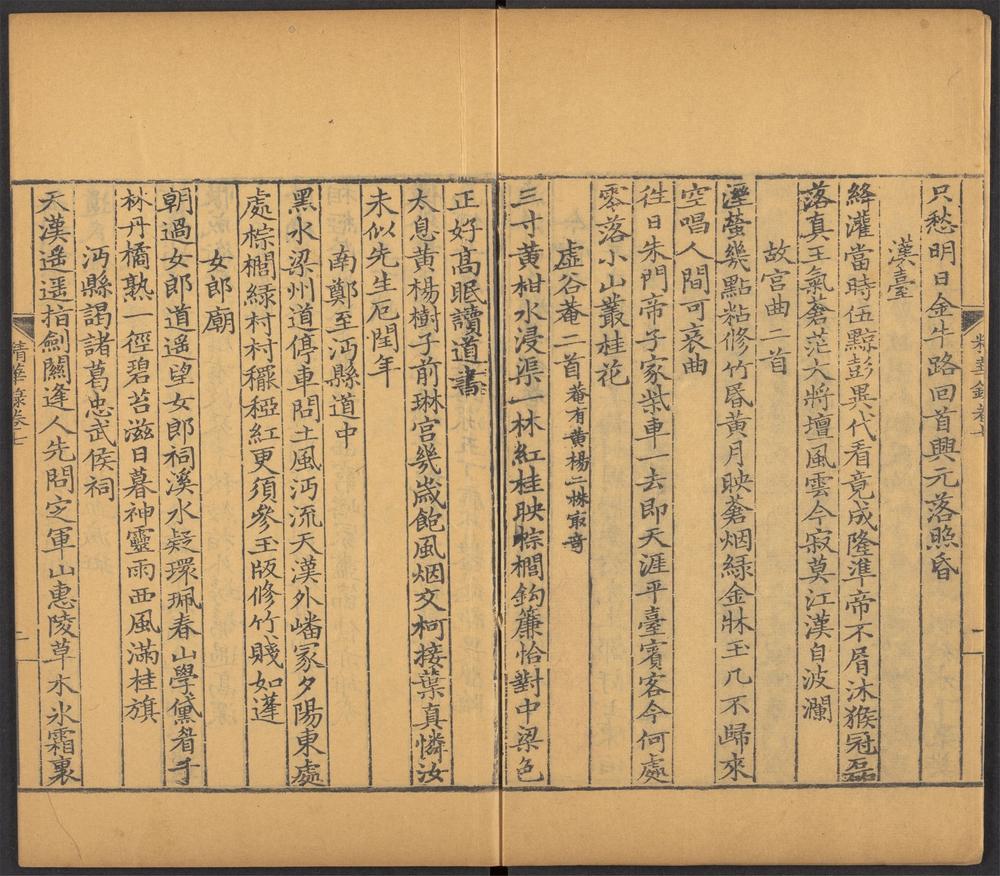 只愁明日金牛路回首興元落照昏
漢臺
絳灌當時伍黥彭異代看竟成隆準帝不屑沐猴冠磊
落真王氣蒼茫大將壇風雲今寂莫江漢自波瀾
故宮曲二首
溼螢幾點粘修竹昏黃月映蒼烟綠金牀玉几不歸來
空唱人間可哀曲
徃日朱門帝子家柴車一去即天涯平臺賓客今何處
零落小山叢桂花
虛谷菴二首菴有黃楊二株㝡奇
三寸黃柑水浸渠一林紅桂映椶櫚鈎簾恰對中梁色
正好高眠讀道書
太息黃楊樹子前琳宮幾歲飽風烟交柯接葉真憐汝
未似先生厄閏年
南鄭至沔縣道中
黑水梁州道停車問土風沔流天漢外嶓冢夕陽東處
處椶櫚綠村村䆉稏紅更須參玉版修竹賤如蓬
女郎廟
朝過女郎道遥望女郎祠溪水疑環珮春山學黛眉千
林丹橘熟一徑碧苔滋日暮神靈雨西風滿桂旗
沔縣謁諸葛忠武侯祠
天漢遥遥指劍關逢人先問定軍山惠陵草木氷霜裏
精華錄卷七
二